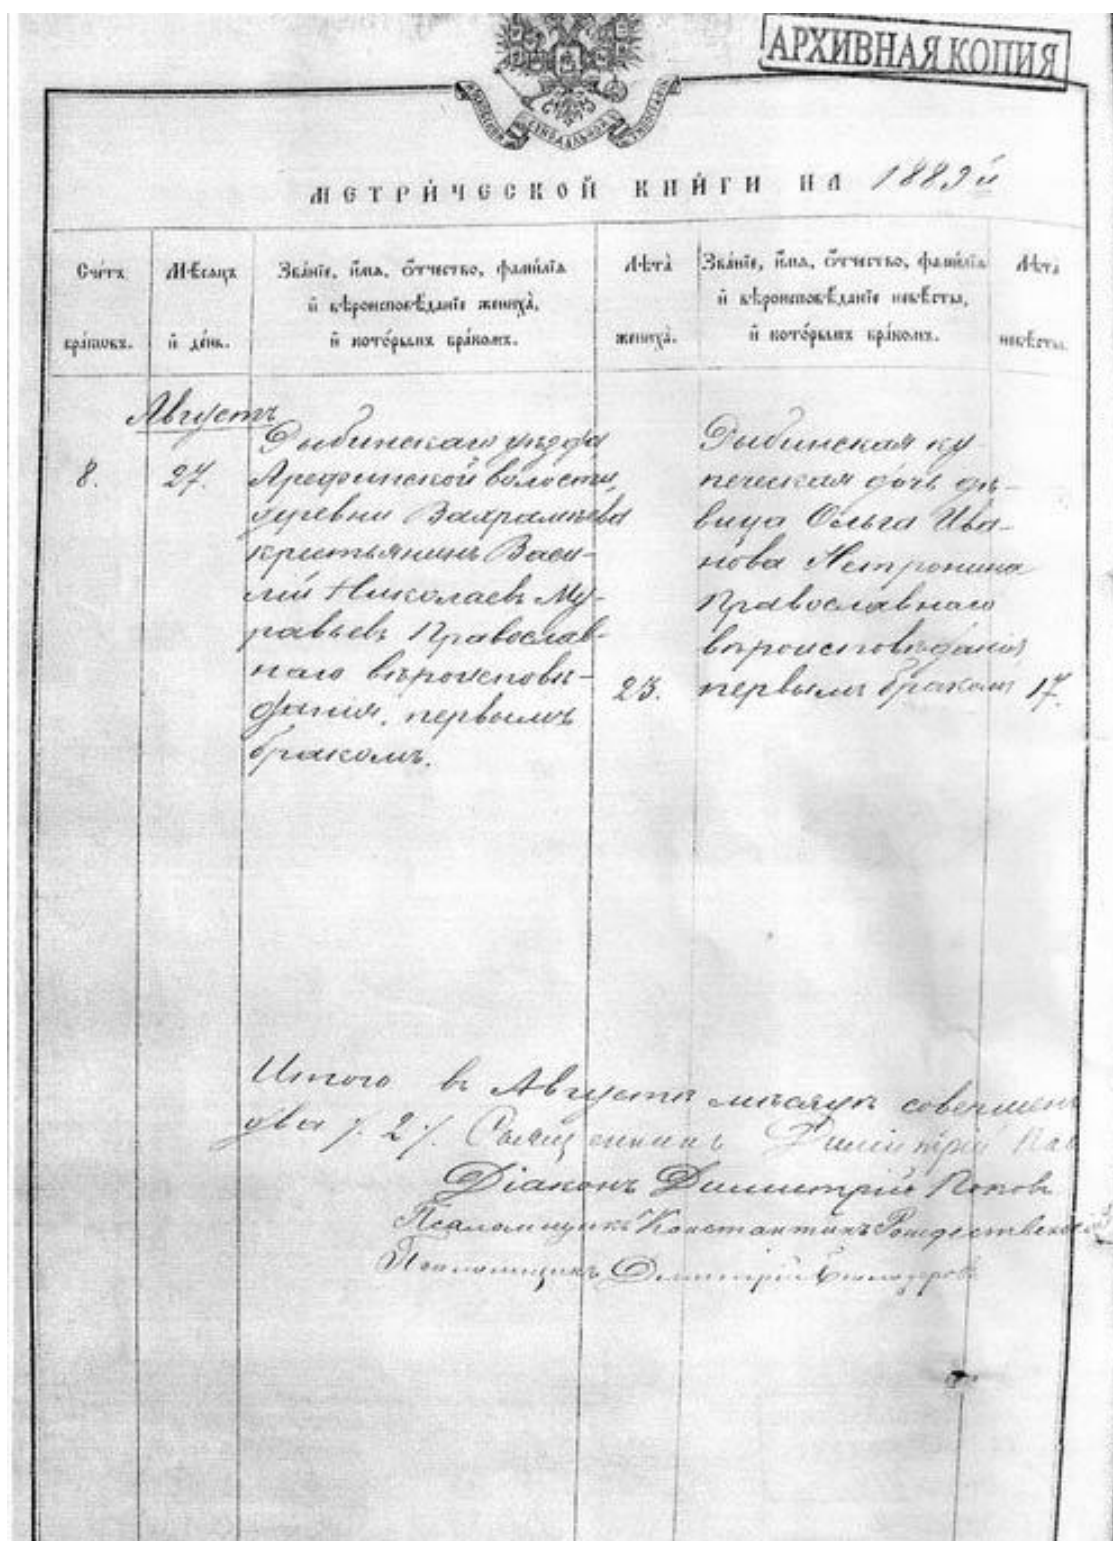 АРХИВНАЯ КОПИЯ
МЕТРИ́ЧЕСКОЙ КНИ́ГИ НА 1889 й
Сче́тъ бра́ковъ.
Мѣсяцъ и де́нь.
Зва́нїе, и́мя, ѻ́тчество, фами́лїа
и҆ вѣроисповѣ́данїе жениха̀,
и҆ кото́рымъ бра́комъ.
Лѣта̀ жениха̀.
Зва́нїе, и́мя, ѻ́тчество, фами́лїа
и҆ вѣроисповѣ́данїе невѣ́сты,
и҆ кото́рымъ бра́комъ.
Лѣта̀ невѣ́сты.
Августъ
8.
27.
Рыбинскаго уѣзда
Арефинской волости,
деревни Вахрамѣева
крестьянинъ Васи-
лій Николаевъ Му-
равьевъ Православ-
наго вѣроисповѣ-
данія, первымъ
бракомъ.
23.
Рыбинская ку-
печеская дочь дѣ-
вица Ольга Ива-
нова
Православнаго
вѣроисповѣданія,
первымъ бракомъ
17.
Итого въ Августѣ мѣсяцѣ совершен
два /. 2 /. Священникъ Димитрій
Діаконъ Димитрій Попов
Псаломщикъ Константинъ Рождественскій
Псаломщикъ Димитрій